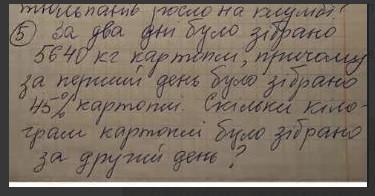 тюльпанів росло на клумбі?
⑤ За два дні було зібрано
5640 кг картоплі, причому
за перший день було зібрано
45% картоплі. Скільки кіло-
грам картоплі було зібрано
за другий день?